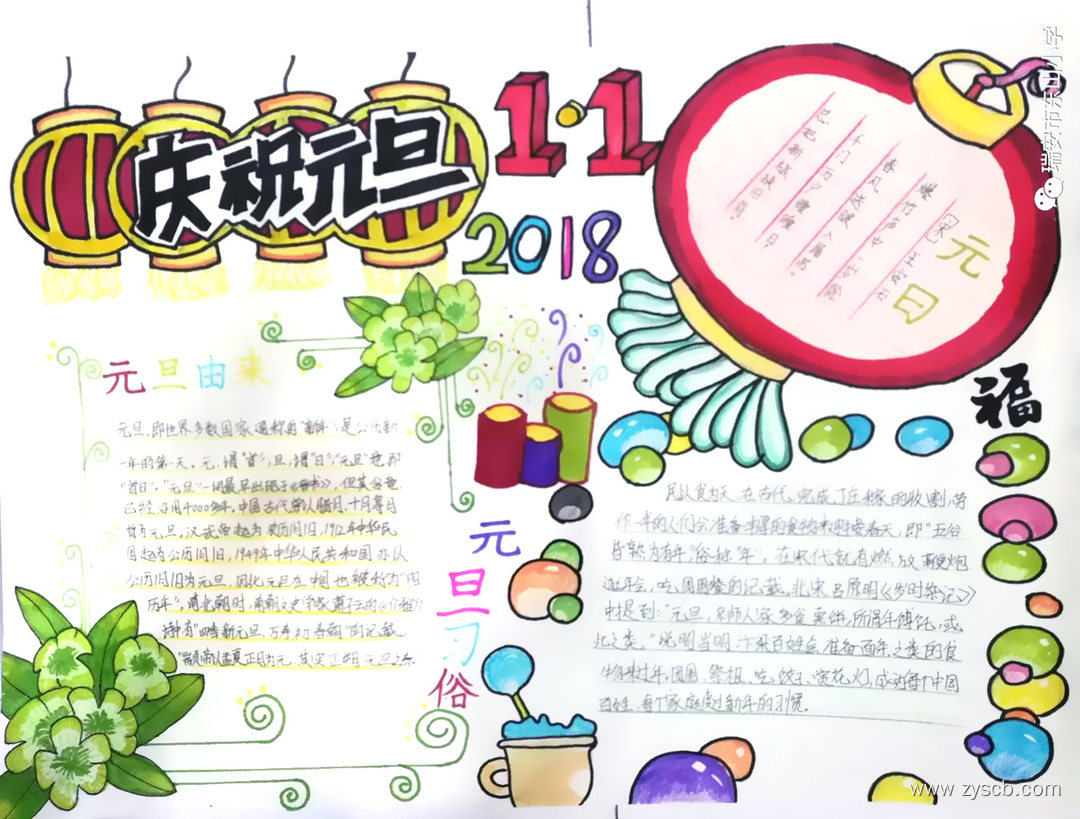 庆祝元旦
1·1
2018
元日
爆竹声中一岁除
春风送暖入屠苏。
千门万户曈曈日
总把新桃换旧符
瑞安市东山小学
福
元旦由来
元旦,即世界多数国家通称的"新年",是公历新
一年的第一天。元,谓"首",旦,谓"日","元旦"意即
"首日"。"元旦"一词最早出现于《晋书》,但其含意
已经沿用4000多年。中国古代曾以腊月、十月等月
首为元旦,汉武帝起为农历1月1日,1912年中华民
国起为公历1月1日,1949年中华人民共和国亦以
公历1月1日为元旦,因此元旦在中国也被称为"阳
历年"。南北朝时,南朝文史学家萧子云的《介雅》
诗中有"四时新元旦,万寿初春朝"的记载。
元旦习俗
民以食为天,在古代,完成了庄稼的收割,劳
作一年的人们会准备丰盛的食物来迎接春天,即"五谷
皆熟为有年"俗称"年"。在宋代就有燃放
吃团圆餐的记载。北宋吕原明《岁时杂记》
中提到:"元旦,京师人家多食索饼,所谓年馎饦,或
此之类。"说明当时汴梁百姓会准备面条之类的食
物来过年。团圆、祭祖、吃饺子、赏花灯,成为每个中国
百姓,每个家庭度过新年的习惯。
www.zyscb.com